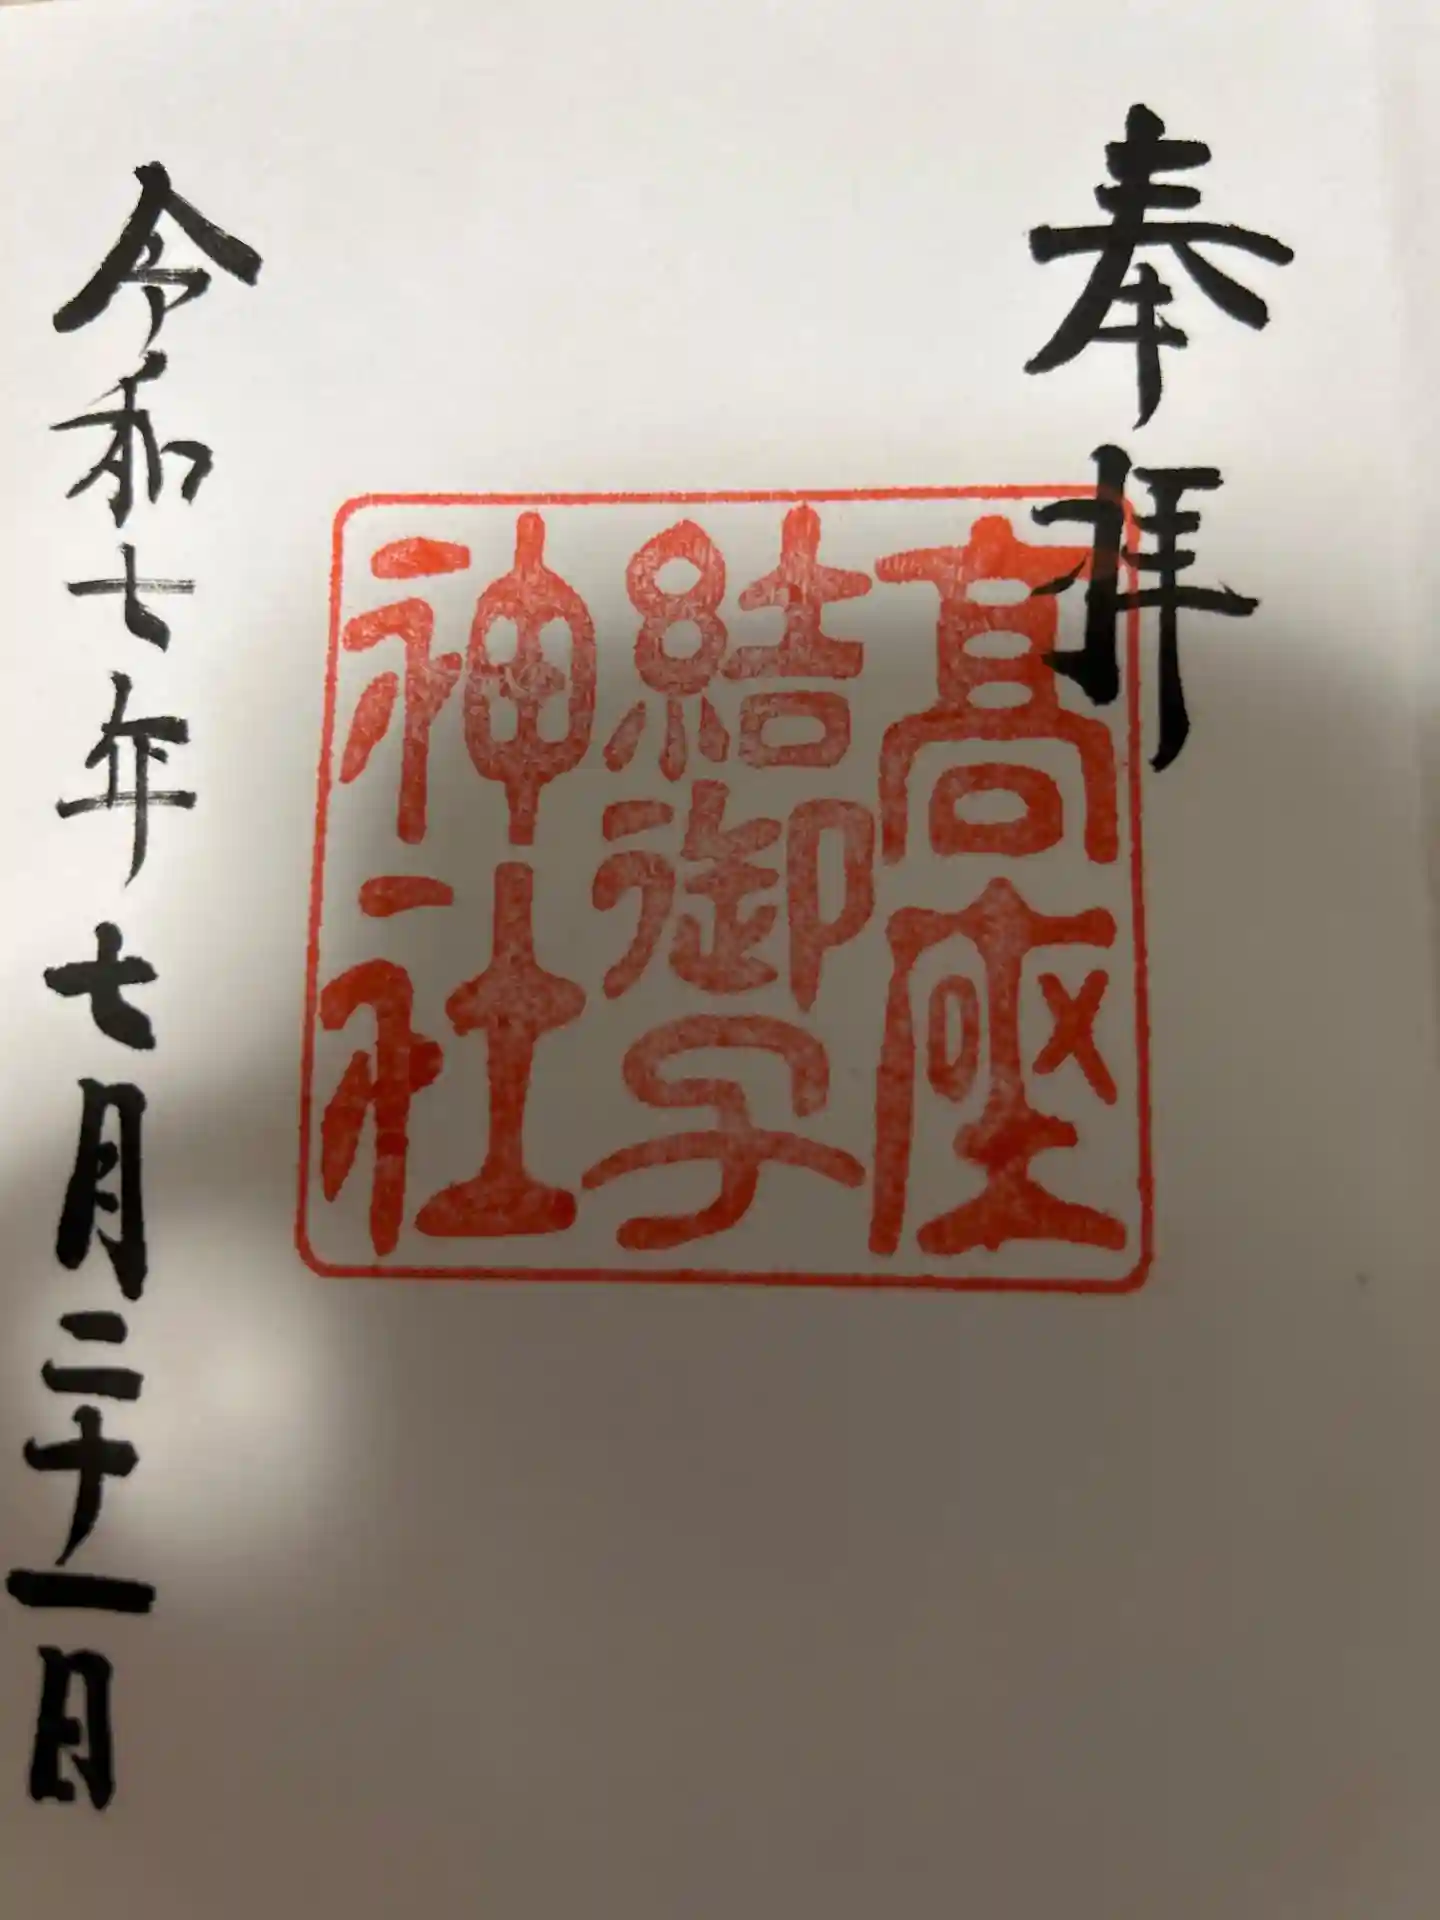 奉拝
高座
結御子
神社
令和七年七月二十一日